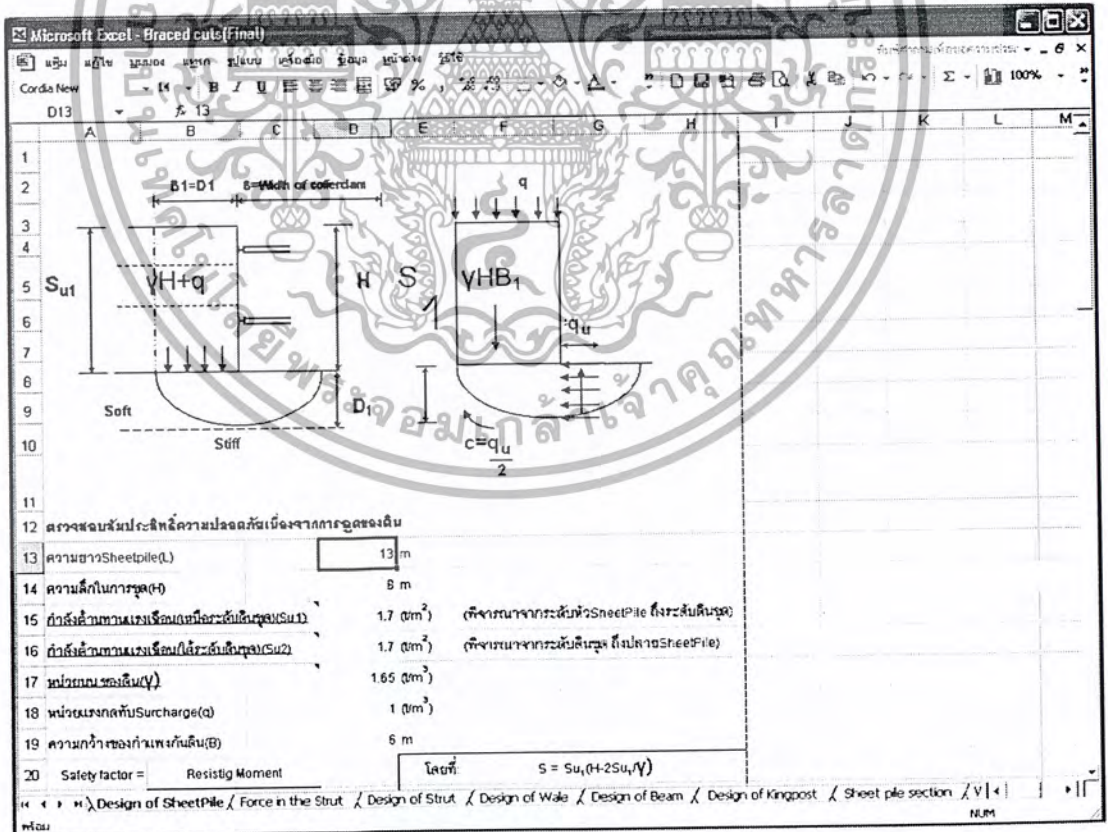 Microsoft Excel - Braced cuts(Final)
แฟ้ม แก้ไข มุมมอง แทรก รูปแบบ เครื่องมือ ข้อมูล หน้าต่าง วิธีใช้
Cordia New 14 B I U % , Σ 100%
D13 fx 13
A B C D E F G H I J K L M
1
2
3
4
5
6
7
8
9
10
11
B1=D1 B=Width of cofferdam
q
Su1
γH+q
H
S
γHB1
qu
Soft
D1
Stiff
c=qu
2
12 ตรวจสอบสัมประสิทธิ์ความปลอดภัยเนื่องจากการอูดของดิน
13 ความยาวSheetpile(L) 13 m
14 ความลึกในการขุด(H) 8 m
15 กำลังต้านทานแรงเฉือนเหนือระดับดินขุด(Su1) 1.7 (t/m2) (พิจารณาจากระดับหัวSheetPile ถึงระดับดินขุด)
16 กำลังต้านทานแรงเฉือนใต้ระดับดินขุด(Su2) 1.7 (t/m2) (พิจารณาจากระดับดินขุด ถึงปลายSheetPile)
17 หน่วยนน ของดิน(γ) 1.65 (t/m3)
18 หน่วยแรงกดทับSurcharge(q) 1 (t/m3)
19 ความกว้างของกำแพงกันดิน(B) 6 m
20 Safety factor = Resistig Moment โดยที่ S = Su1(H-2Su1/γ)
Design of SheetPile / Force in the Strut / Design of Strut / Design of Wale / Design of Beam / Design of Kingpost / Sheet pile section / V
พร้อม NUM